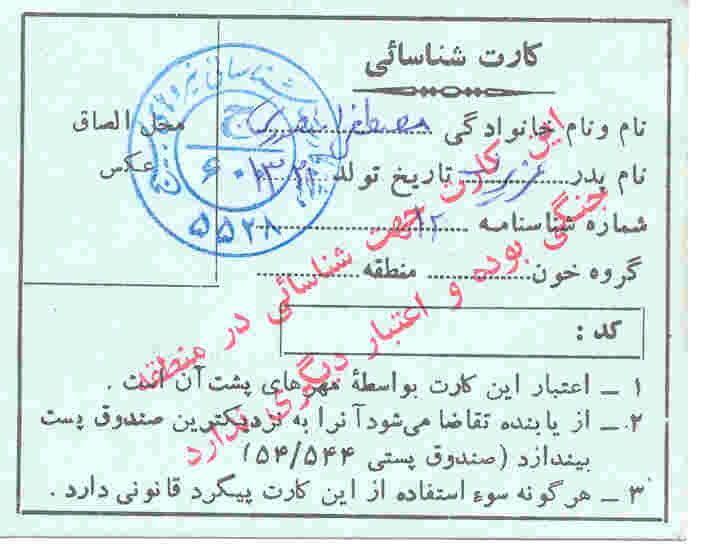 کارت شناسائی
نام و نام خانوادگی مصطفی
محل الصاق
عکس
نام پدر تاریخ تولد ۱۳۲۰
شماره شناسنامه ۱۲
گروه خون منطقه
شناسائی
ج
۶۰
۵۵۲۸
کد :
۱ ــ اعتبار این کارت بواسطهٔ مهرهای پشت آن است .
۲ ــ از یابنده تقاضا می‌شود آنرا به نزدیکترین صندوق پست
بیندازد (صندوق پستی ۵۴/۵۴۴)
۳ ــ هرگونه سوء استفاده از این کارت پیگرد قانونی دارد .
این کارت جهت شناسائی در منطقه
جنگی بوده و اعتبار دیگری ندارد